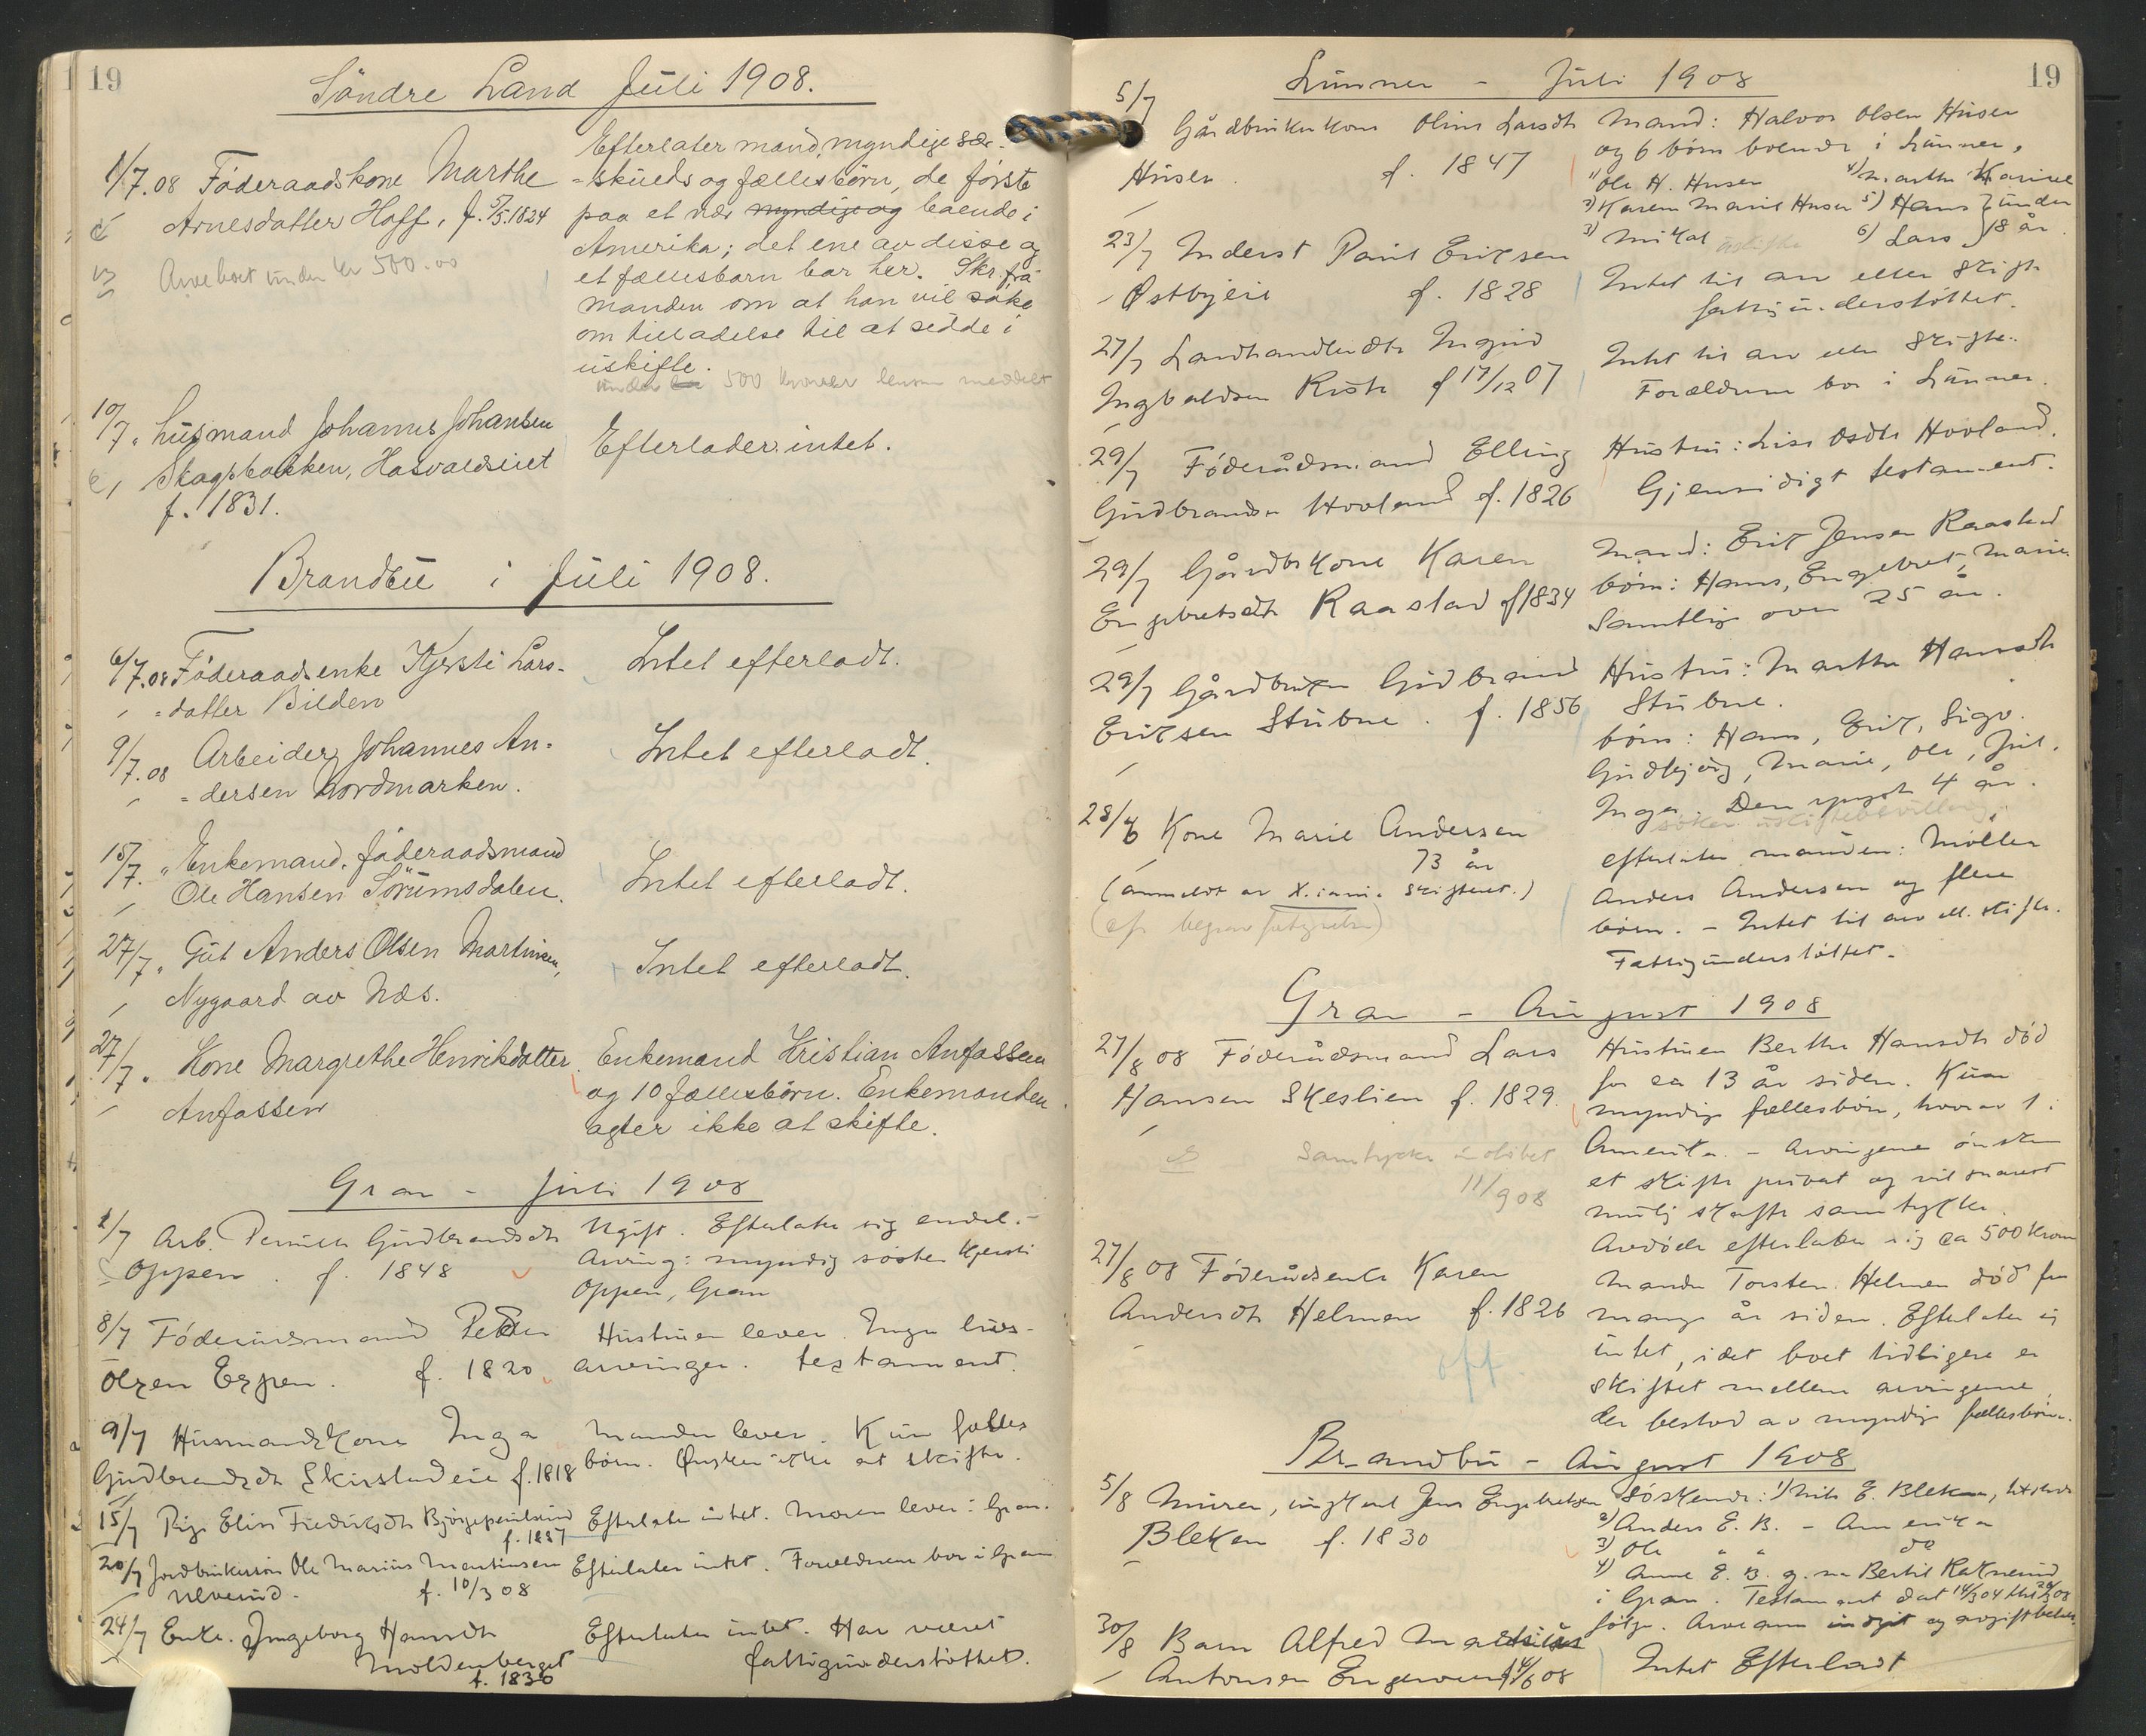 19
Söndre Land Juli 1908.
1/7.08 Föderaadskone Marthe
Arnesdatter Hoff, f. 5/5.1824
Arveboet under kr 500.00
Efterlater mand, myndige sær-
=skilds og fællesbörn, de förste
paa et nær myndige og boende i
Amerika; det ene av disse og
et fællesbarn bor her. Skr. fra
manden om at han vil söke
om tilladelse til at sidde i
uskifte.
under 500 kroner meddelt
10/7 " Husmand Johannes Johansen
Skagsbakken, Hasvaldseiet
f. 1831.
Efterlader intet.
Brandbu i Juli 1908.
6/7.08 Föderaadsenke Kjersti Lars-
=datter Bilden
Intet efterladt.
9/7.08 Arbeider Johannes An-
=dersen Nordmarken.
Intet efterladt.
15/7. " Enkemand, föderaadsmand
Ole Hansen Sörumsdalen.
Intet efterladt.
27/7 " Gut Anders Olsen Martinsen,
Nygaard av Næs.
Intet efterladt.
27/7 " Kone Margrethe Henrikdatter
Anfossen
Enkemand Kristian Anfossen
og 10 fællesbörn. Enkemanden
agter ikke at skifte.
Gran - Juli 1908
1/7 Arb. Pernille Gudbrandsdtr
Oppen. f. 1848
Ugift. Efterlater sig endel.
Arving: myndig söster Kjersti
Oppen, Gran
8/7 Föderådsmand Peder
Olsen Egpen. f. 1820
Hustruen lever. Ingen livs-
arvinger. testament.
9/7 Husmandskone Inga
Gudbrandsdt Skirstadeie f. 1818
Manden lever. Kun fælles
börn. Ønsker ikke at skifte.
15/7 Pige Elise Fredriksdt
f. 1887
Efterlater intet. Moren lever i Gran.
20/7 Jordbrukersön Ole Marius Martinsen
Ulverud. f. 10/3 08
Efterlater intet. Forældrene bor i Gran
24/7 Enke Ingeborg Hansdtr
Moldenberget
f. 1836
Efterlater intet. Har været
fattigunderstöttet.
19
Lunner - Juli 1908
5/7 Gårdbrukerkone Oline Larsdtr
Husen. f. 1847
Mand: Halvor Olsen Husen
og 6 börn boende i Lunner,
1) Ole H. Husen 4) Marthe Karine
2) Karen Marie Husen 5) Hans } under
3) Mikal 6) Lars } 18 år.
23/7 Inderst Paul Eriksen
Østbyeie f. 1828
Intet til arv eller skifte
fattigunderstöttet.
27/7 Landhandlerdtr Ingrid
Ingvaldsen Roste f 17/12 07
Intet til arv eller skifte.
Forældrene bor i Lunner.
29/7 Föderådsmand Elling
Gudbrandsen Hovland f. 1826
Hustru: Lise Osdtr Hovland.
Gjensidigt testament.
29/7 Gårdbrkone Karen
Engebretsdtr Raastad f 1834
Mand: Erik Jensen Raastad
börn: Hans, Engebret, Marie
samtlige over 25 år.
29/7 Gårdbruker Gudbrand
Eriksen Stubne. f. 1856
Hustru: Marthe Hansdtr
Stubne.
börn: Hans, Erik, Sigv.
Gudbjörg, Marie, Ole, Jul.
Inga. Den yngste 4 år.
söker uskiftebevilling.
28/6 Kone Marie Andersen
73 år
(anmeldt av X.iania skifteret.)
efterlater manden: Möller
Anders Andersen og flere
börn. - Intet til arv ell. skifte.
Fattigunderstöttet.
Gran - August 1908
27/8 08 Föderådsmand Lars
Hansen Skeslien f. 1829.
Samtykke
11/9 08
Hustruen Berthe Hansdtr död
for ca 13 år siden. Kun
myndige fællesbörn, hvorav 1 i
Amerika. - Arvingene önsker
et skifte privat og vil snarest
mulig skaffe samtykke.
Avdöde efterlater sig ca 500 kroner
27/8 08 Föderådsenke Karen
Andersdt Helmen f. 1826
off
Manden Torsten Helmen död for
mange år siden. Efterlater sig
intet, idet boet tidligere er
skiftet mellem arvingene,
der bestod av myndige fællesbörn.
Brandbu - August 1908
5/8 Murer, ungkarl Jens Engebretsen
Bleken f. 1830
Söskende: 1) Nils E. Bleken,
2) Anders E. B. - Amerika
3) Ole " " do
4) Anne E. B. g. m Bertil Raknerud
i Gran. Testament dat 14/3 04
30/8 Barn Alfred
Antonsen Engerevent 08
Intet Efterladt